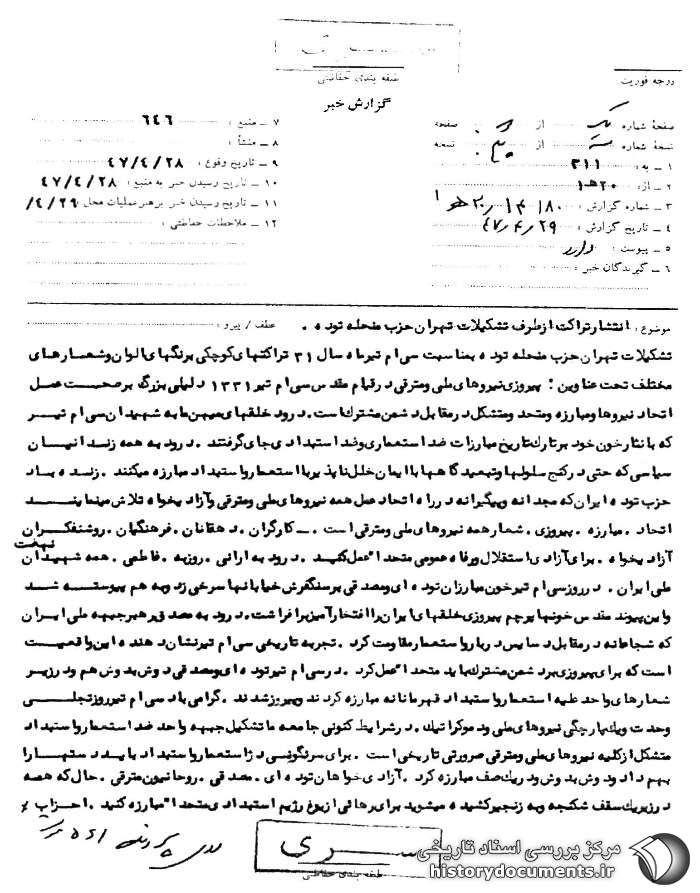 طبقه بندی حفاظتی
درجه فوریت
گزارش خبر
صفحهٔ شماره یک از صفحه
نسخهٔ شماره از نسخه
۱ ــ به : ۳۱۱
۲ ــ از : ۲۰ هـ ۱
۳ ــ شماره گزارش :
۴ ــ تاریخ گزارش : ۴۷/۴/۲۹
۵ ــ پیوست : دارد
۶ ــ گیرندگان خبر :
۷ ــ منبع : ۶۴۶
۸ ــ منشأ :
۹ ــ تاریخ وقوع : ۴۷/۴/۲۸
۱۰ ــ تاریخ رسیدن خبر به منبع : ۴۷/۴/۲۸
۱۱ ــ تاریخ رسیدن خبر برهبر عملیات محل : /۴/۲۹
۱۲ ــ ملاحظات حفاظتی :
موضوع : انتشار تراکت از طرف تشکیلات تهران حزب منحله توده . عطف / پیرو :
تشکیلات تهران حزب منحله توده بمناسبت سی ام تیرماه سال ۳۱ تراکتهای کوچکی برنگهای الوان و شعارهای
مختلف تحت عناوین : پیروزی نیروهای ملی و مترقی در قیام مقدس سی ام تیر ۱۳۳۱ دلیلی بزرگ بر صحت عمل
اتحاد نیروها و مبارزه و متحد و متشکل در مقابل دشمن مشترک است . درود خلقهای میهن ما به شهیدان سی ام تیر
که با نثار خون خود بر تارک تاریخ مبارزات ضد استعماری و ضد استبدادی جای گرفتند . درود به همه زندانیان
سیاسی که حتی در کنج سلولها و تبعیدگاهها با ایمان خلل ناپذیر با استعمار و استبداد مبارزه میکنند . زنده باد
حزب توده ایران که مجدانه و پیگیرانه در راه اتحاد عمل همه نیروهای ملی و مترقی و آزادیخواه تلاش مینمایند
اتحاد . مبارزه . پیروزی . شعار همه نیروهای ملی و مترقی است . ــ کارگران . دهقانان . فرهنگیان . روشنفکران
آزادیخواه . برای آزادی استقلال و رفاه عمومی متحدا" عمل کنید . درود به ارانی . روزبه . فاطمی . همه شهیدان نهضت
ملی ایران . در روز سی ام تیر خون مبارزان توده ای و مصدقی بر سنگفرش خیابانها سرخی زد و به هم پیوسته شد
و این پیوند مقدس خونها پرچم پیروزی خلقهای ایران را افتخار آمیز برافراشت . درود به مصدق رهبر جبهه ملی ایران
که شجاعانه در مقابل دسایس دربار و استعمار مقاومت کرد . تجربه تاریخی سی ام تیر نشان دهنده این واقعیت
است که برای پیروزی بر دشمن مشترک باید متحدا" عمل کرد . در سی ام تیر توده ای و مصدقی دوش بدوش هم و در زیر
شعارهای واحد علیه استعمار و استبداد قهرمانانه مبارزه کردند و پیروز شدند . گرامی باد سی ام تیر روز تجلی
وحدت و یکپارچگی نیروهای ملی و دموکراتیک . در شرایط کنونی جامعه ما تشکیل جبهه واحد ضد استعمار و استبداد
متشکل از کلیه نیروهای ملی و مترقی ضرورتی تاریخی است . برای سرنگونی دژ استعمار و استبداد باید دستها را
بهم داد و دوش بدوش و در یک صف مبارزه کرد . آزادیخواهان توده ای . مصدقی . روحانیون مترقی . حال که همه
در زیر یک سقف شکنجه و به زنجیر کشیده میشوید برای رهائی از یوغ رژیم استبدادی متحدا" مبارزه کنید . احزاب و
سری
طبقه بندی حفاظتی
مرکز بررسی اسناد تاریخی
historydocuments.ir